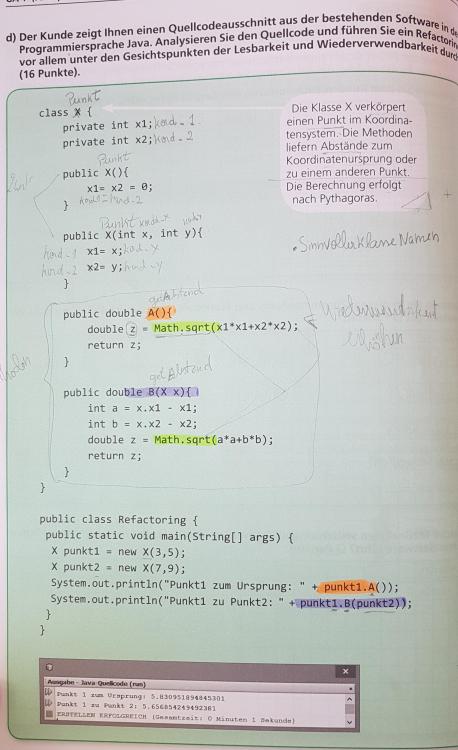 d) Der Kunde zeigt Ihnen einen Quellcodeausschnitt aus der bestehenden Software in de
Programmiersprache Java. Analysieren Sie den Quellcode und führen Sie ein Refactorin
vor allem unter den Gesichtspunkten der Lesbarkeit und Wiederverwendbarkeit durc
(16 Punkte).
Punkt
class X {
private int x1;
private int x2;
Die Klasse X verkörpert
einen Punkt im Koordina-
tensystem. Die Methoden
liefern Abstände zum
Koordinatenursprung oder
zu einem anderen Punkt.
Die Berechnung erfolgt
nach Pythagoras.
Punkt
public X(){
x1= x2 = 0;
}
Punkt
public X(int x, int y){
x1= x;
x2= y;
}
Sinnvoller Klare Namen
getAbstand
public double A(){
double z = Math.sqrt(x1*x1+x2*x2);
return z;
}
erhöhen
getAbstand
public double B(X x){
int a = x.x1 - x1;
int b = x.x2 - x2;
double z = Math.sqrt(a*a+b*b);
return z;
}
}
public class Refactoring {
public static void main(String[] args) {
X punkt1 = new X(3,5);
X punkt2 = new X(7,9);
System.out.println("Punkt1 zum Ursprung: " + punkt1.A());
System.out.println("Punkt1 zu Punkt2: " + punkt1.B(punkt2));
}
}
Ausgabe - Java-Quellcode (run)
Punkt 1 zum Ursprung: 5.830951894845301
Punkt 1 zu Punkt 2: 5.656854249492381
ERSTELLEN ERFOLGREICH (Gesamtzeit: 0 Minuten 1 Sekunde)